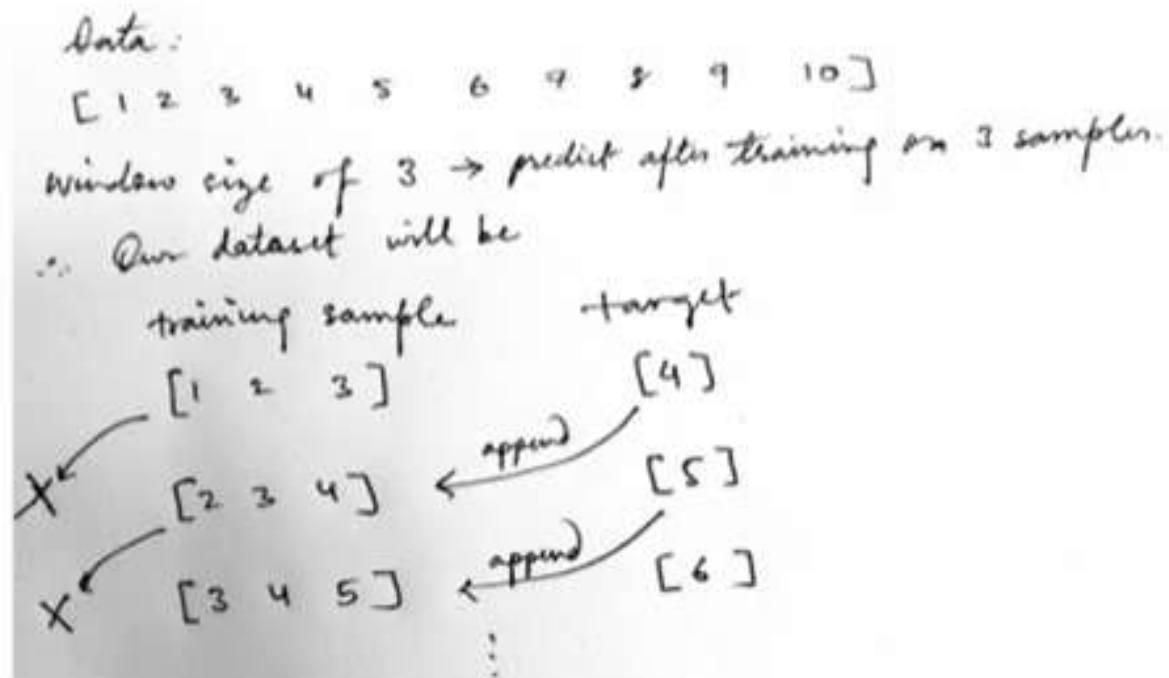 Data:
[ 1 2 3 4 5 6 7 8 9 10 ]
window size of 3 → predict after training on 3 samples.
∴ Our dataset will be
training sample target
[1 2 3] [4]
append
X [2 3 4] [5]
append
X [3 4 5] [6]
⋮